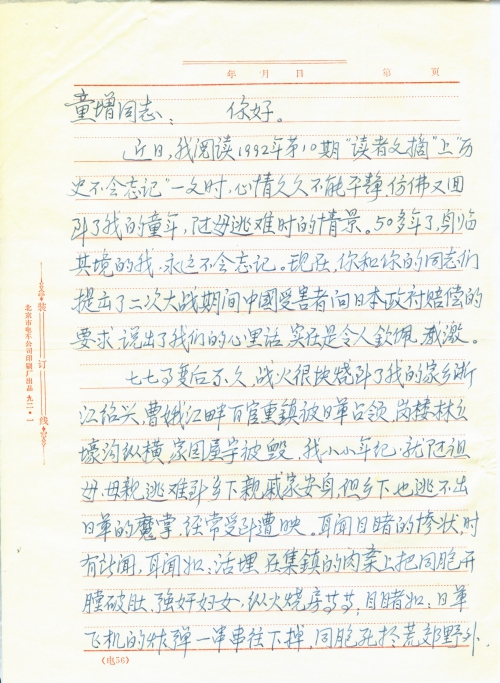 年 月 日 第 页
童增同志： 你好。
近日，我阅读1992年第10期"读者文摘"上"历
史不会忘记"一文时，心情久久不能平静，仿佛又回
到了我的童年，随母逃难时的情景。50多年了，身临
其境的我，永远不会忘记。现在，你和你的同志们
提出了二次大战期间中國受害者向日本政府赔偿的
要求，说出了我们的心里话，实在是令人钦佩、感激。
七七事变后不久，战火很快烧到了我的家乡浙
江绍兴，曹娥江畔百官重镇被日軍占领，岗楼林立
壕沟纵横，家园屋宇被毁，我小小年纪，就随祖
母、母親逃难到乡下親戚家安身，但乡下也逃不出
日軍的魔掌，经常受到遭殃。耳闻目睹的惨状，时
有所闻，耳闻如：活埋、在集鎮的肉案上把同胞开
膛破肚、强奸妇女、纵火烧房等等，目睹如：日軍
飞机的炸弹一串串往下掉，同胞死於荒郊野外，
装订线
北京市电车公司印刷厂出品 九二·一
（电56）